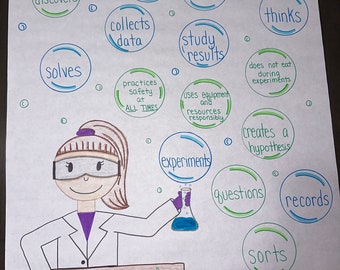 discovers
collects
data
thinks
study
results
solves
does not eat
during
experiments
practices
safety
at
ALL TIMES
uses equipment
and
resources
responsibly
creates a
hypothesis
experiments
questions
records
sorts